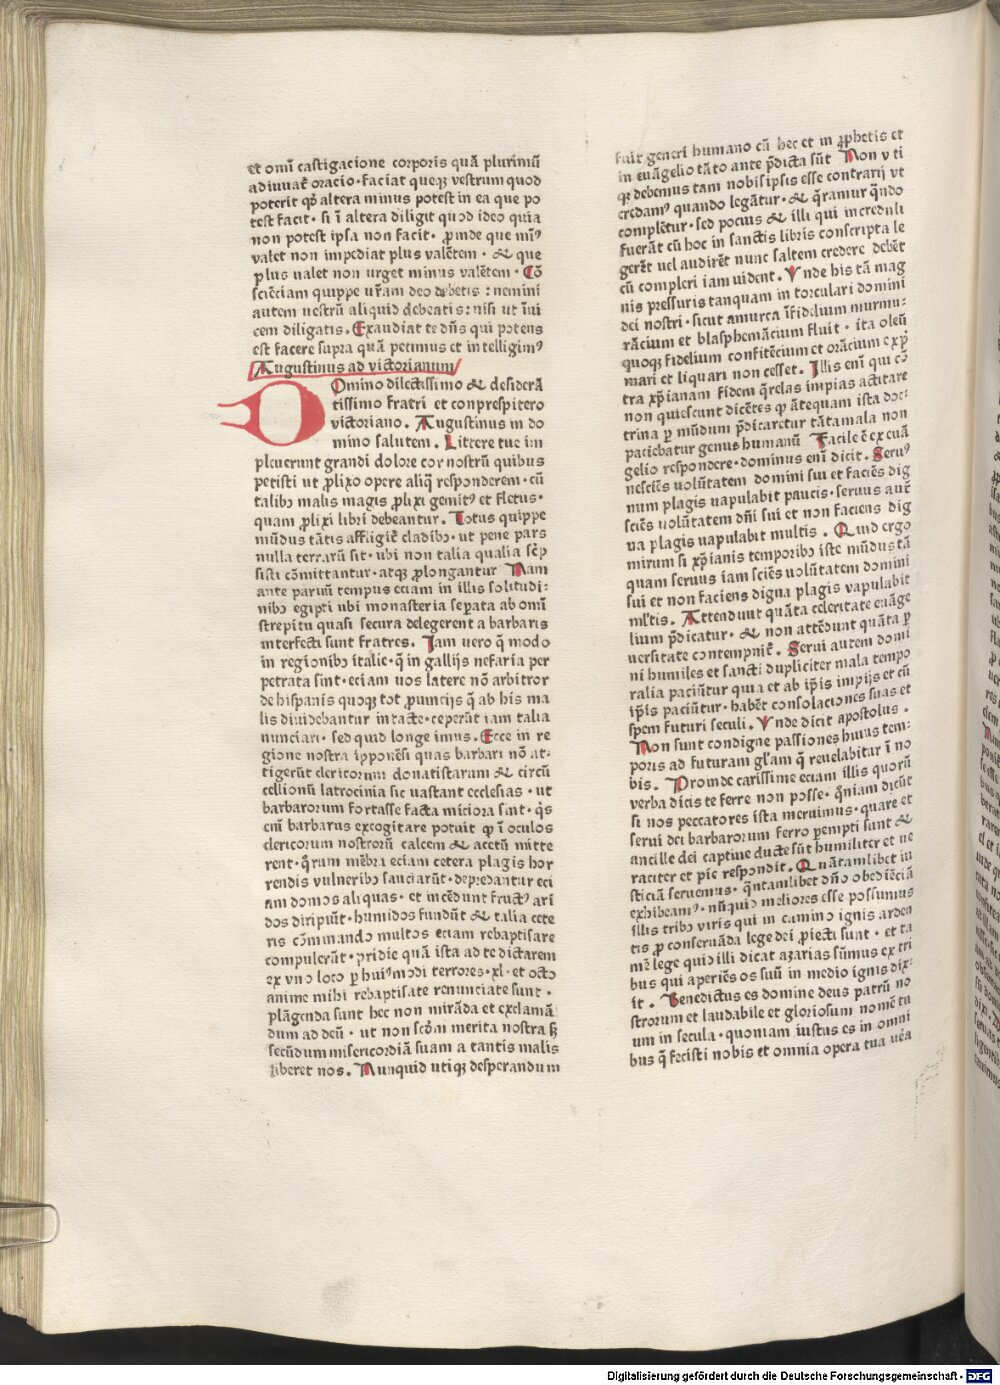 et omī castigacione corporis quā plurimū
adiuuat̄ oracio·faciat queqꝫ vestrum quod
poterit qꝫ altera minus potest in ea que po
test facit·si ī altera diligit quod ideo quia
non potest ipsa non facit· ꝓinde que minꝰ
valet non impediat plus valētem·& que
plus ualet non urget minus valētem·Cō
sciēciam quippe vr̄am deo debetis:nemini
autem uestrū aliquid debeatis:nisi ut īui
cem diligatis.Exaudiat te dn̄s qui potens
est facere supra quā petimus et intelligimꝰ
Augustinus ad victorianum
Domino dilectissimo & desiderā
tissimo fratri et conprespitero
victoriano. Augustinus in do
mino salutem. Littere tue im
pleuerunt grandi dolore cor nostrū quibus
petisti ut ꝓlixo opere aliq̄ responderem·cū
talibꝫ malis magis ꝓlixi gemitꝰ et fletus·
quam ꝓlixi libri debeantur. Totus quippe
mūdus tātis affligit̄ cladibꝫ·ut pene pars
nulla terrarū sit·ubi non talia qualia sc̄p
sisti cōmittantur·atqꝫ ꝓlongantur Nam
ante paruū tempus eciam in illis solitudi:
nibꝫ egipti ubi monasteria seꝑata ab omī
strepitu quasi secura delegerent a barbaris
interfecti sunt fratres. Iam uero q̄ modo
in regionibꝫ italie·q̄ in gallijs nefaria per
petrata sint·eciam uos latere nō arbitror
de hispanis quoqꝫ tot ꝓuincijs q̄ ab his ma
lis diu uidebantur intacte·ceperūt iam talia
nunciari·sed quid longe imus.Ecce in re
gione nostra ipponēsi quas barbari nō at:
tigerūt clericorum donatistaram & circū
cellionū latrocinia sic uastant ecclesias·ut
barbarorum fortasse facta miciora sint·q̄s
enī barbarus excogitare potuit qꝫ ī oculos
clericorum nostrorū calcem & acetū mitte
rent·q̄rum mēbra eciam cetera plagis hor
rendis vulneribꝫ sauciarūt·depredantur eci
am domos aliquas·et incēdunt fructꝰ ari
dos diripiūt·humidos fundūt & talia cete
ris cōmmando multos eciam rebaptisare
compulerūt·pridie quā ista ad te dictarem
ex vno loco ꝑ huiꝰmodi terrores·xl·et octo
anime mihi rebaptisate renunciate sunt·
plāgenda sunt hec non mirāda et exclamā:
dum ad deū·ut non scd̄m merita nostra sꝫ
secūdum misericordiā suam a tantis malis
liberet nos. Nunquid utiqꝫ desperandum
fuit generi humano cū hec et in ꝓphetis et
in euāgelio tāto ante p̄dicta sūt Non v ti
qꝫ debemus tam nobis ipsis esse contrarij vt
credamꝰ quando legātur·& q̄ramur q̄ndo
complētur·sed pocius & illi qui increduli
fuerāt cū hoc in sanctis libris conscripta le
gerēt uel audirēt nunc saltem credere debēt
cū compleri iam uident. Vnde his tā mag
nis pressuris tanquam in torculari domini
dei nostri·sicut amurca īfidelium murmu:
rācium et blasphemācium fluit·ita oleū
quoqꝫ fidelium confitēcium et orācium exp̄
mari et liquari non cesset. Illis enī qui cō
tra xp̄ianam fidem q̄relas impias actitare
non quiescunt dicētes qꝫ ātequam ista doc:
trina ꝑ mūdum p̄dicaretur tātamala non
paciebatur genus humanū Facile ē ex euā
gelio respondere·dominus enī dicit.Seruꝰ
nesciēs uolūtatem domini sui et faciēs dig
num plagis uapulabit paucis·seruus aut̄
sciēs uolūtatem dn̄i sui et non faciens dig
na plagis uapulabit multis. Quid ergo
mirum si xp̄ianis temporibꝫ iste mūdus tā
quam seruus iam sciēs uolūtatem domini
sui et non faciens digna plagis vapulabit
ml̄tis. Attendunt quāta celeritate euāge
lium p̄dicatur·& non attēdunt quāta ꝑ
uersitate contempnit̄. Serui autem domi
ni humiles et sancti dupliciter mala tempo
ralia paciūtur quia et ab ip̄is impijs et cū
ip̄is paciūtur·habēt consolaciones suas et
spem futuri seculi. Vnde dicit apostolus.
Non sunt condigne passiones huius tem:
poris ad futuram gl̄am q̄ reuelabitur ī no
bis. Proinde carissime eciam illis quorū
verba dicis te ferre non posse·q̄niam dicūt
si nos peccatores ista meruimus·quare et
serui dei barbarorum ferro ꝑempti sunt &
ancille dei captiue ducte sūt humiliter et ue
raciter et pie respondit. Quātamlibet in
sticiā seruemus·q̄ntamlibet dn̄o obediēciā
exhibeamꝰ·nūquid meliores esse possumus
illis tribꝫ viris qui in camino ignis arden
tis ꝓ conseruāda lege dei ꝓiecti sunt·et ta
mē lege quid illi dicat azarias sūmus ex tri
bus qui aperiēs os suū in medio ignis dix:
it. Benedictus es domine deus patrū no
strorum et laudabile et gloriosum nomē tu
um in secula·quoniam iustus es in omni
bus q̄ fecisti nobis et omnia opera tua uēa
Digitalisierung gefördert durch die Deutsche Forschungsgemeinschaft - DFG